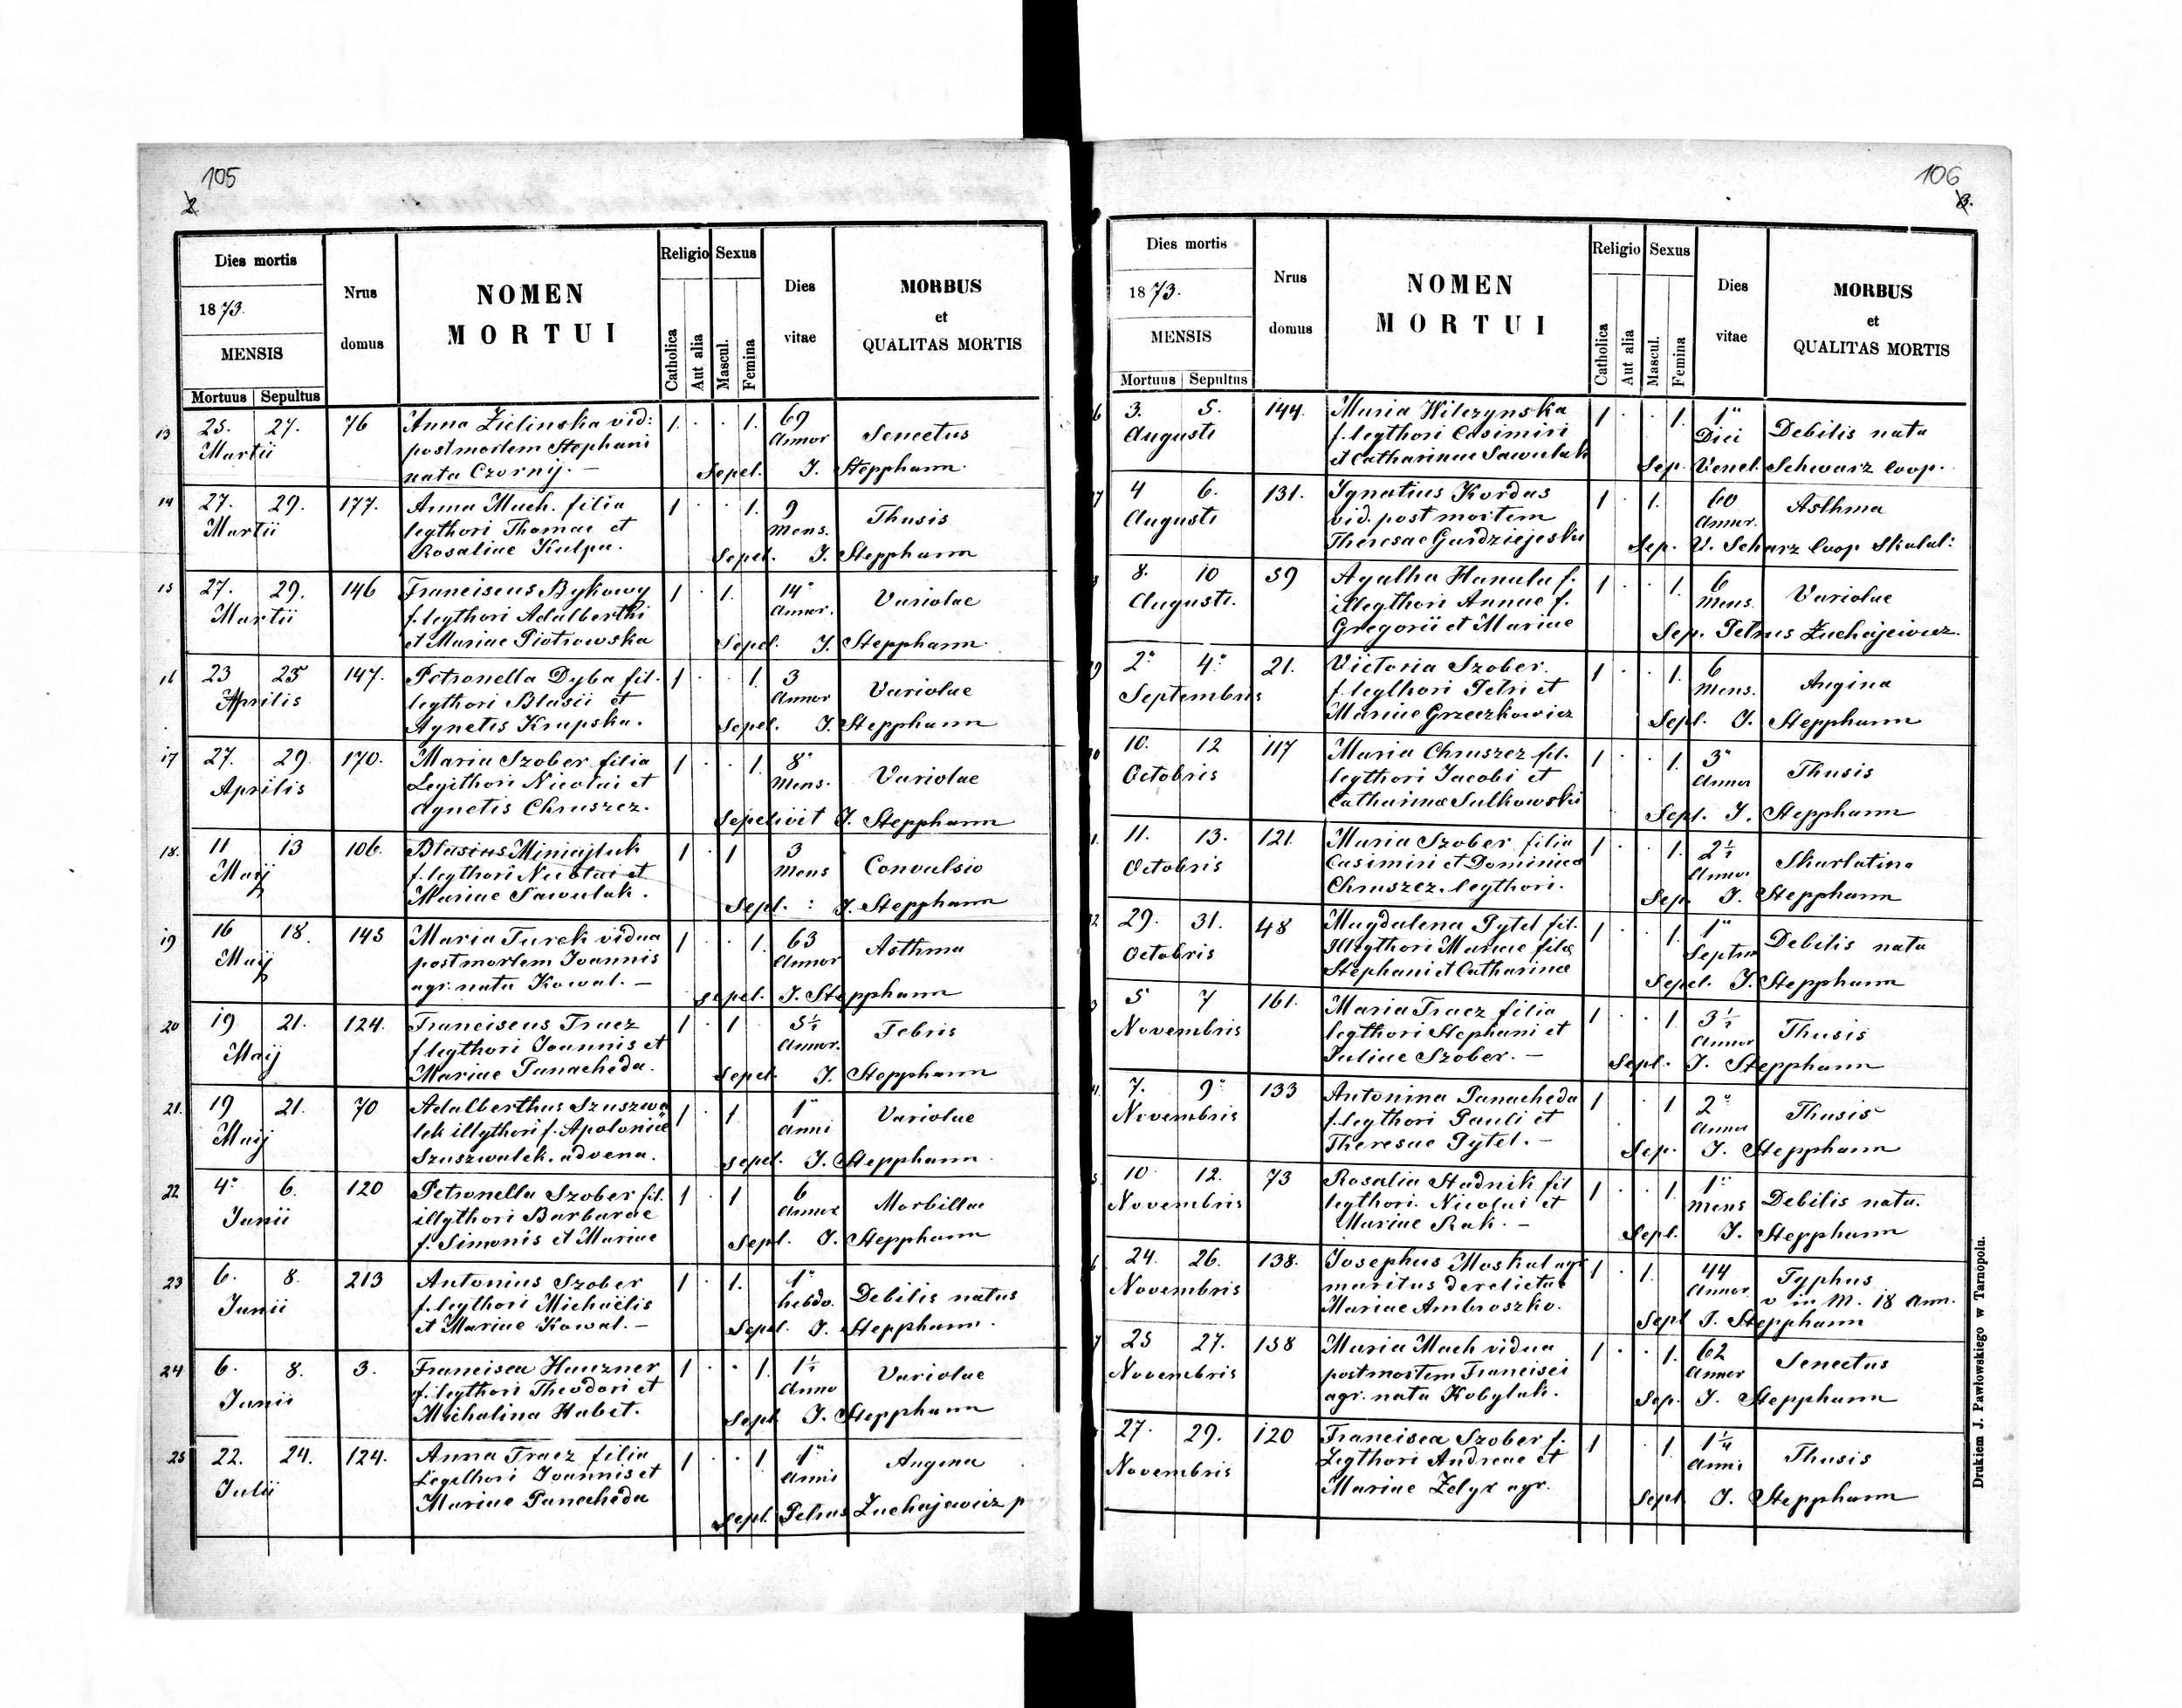 105
2
Dies mortis
1873.
MENSIS
Mortuus Sepultus
Nrus domus
NOMEN
MORTUI
Religio
Catholica
Aut alia
Sexus
Mascul.
Femina
Dies vitae
MORBUS
et
QUALITAS MORTIS
13 25. 27. 76 Anna Zielinska vid: 1. . . 1. 69
Martii postmortem Stephani Annor Senectus
nata Czornij. — Sepel. J. Stepphann
14 27. 29. 177. Anna Mach. filia 1 . . 1. 9
Martii legthori Thomae et Mens. Thusis
Rosaliae Kulpa. Sepel. J. Stepphann
15 27. 29. 146 Franciscus Bykowy 1 . 1. 14
Martii f. legthori Adalberthi Annor. Variolae
et Mariae Piotrowska Sepel. J. Stepphann
16 23 25 147. Petronella Dyba fil. 1 . . 1. 3
Aprilis legthori Blasii et Annor Variolae
Agnetis Krupska. Sepel. J. Stepphann
17 27. 29. 170. Maria Szober filia 1 . . 1. 8
Aprilis Legithori Nicolai et Mens. Variolae
Agnetis Chruszcz. Sepelivit J. Stepphann
18. 11 13 106. Blasius Miniajluk 1 . 1 3
Maij f. legthori Nicolai et Mens Convulsio
Mariae Sawulak. Sepl. : J. Stepphann
19 16 18. 145 Maria Turek vidua 1 . . 1. 63
Maij postmortem Joannis Annor Asthma
agr. nata Kowal. — Sepel. J. Stepphann
20 19 21. 124. Franciscus Tracz 1 . 1 3½
Maij f legthori Joannis et Annor. Febris
Mariae Panacheda. Sepel. J. Stepphann
21. 19 21. 70 Adalberthus Szuszwa 1 . 1 1
Maij lek illythori f. Apoloniae anni Variolae
Szuszwalek. advena. Sepel. J. Stepphann
22 4. 6. 120 Petronella Szober fil. 1 . 1 6
Junii illythori Barbarae Annor Morbillae
f. Simonis et Mariae Sepl. J. Stepphann
23 6. 8. 213 Antonius Szober 1 . 1. 1
Junii f. legthori Michaëlis hebdo. Debilis natus
et Mariae Kowal. — Sepel. J. Stepphann.
24 6. 8. 3. Francisca Hauzner 1 . . 1. 1½
Junii f. legthori Theodori et Anno Variolae
Michalina Habet. Sepl J. Stepphann
25 22. 24. 124. Anna Tracz filia 1 . . 1 1
Julii Legithori Joannis et Anni Angena
Mariae Panacheda Sepl. Petrus Zuchajewicz p
106
3.
Dies mortis
1873.
MENSIS
Mortuus Sepultus
Nrus domus
NOMEN
MORTUI
Religio
Catholica
Aut alia
Sexus
Mascul.
Femina
Dies vitae
MORBUS
et
QUALITAS MORTIS
6 3. 5. 144. Maria Wilczynska 1 . . 1. 1
Augusti f. legthori Casimiri Diei Debilis nata
et Catharinae Sawulak Sep. Venel. Schwarz Coop.
7 4 6. 131. Ignatius Kordas 1 . 1. 60
Augusti vid. post mortem Annor. Asthma
Theresae Gardziejeska Sep. V. Scharz Coop Skalat:
8 8. 10 59 Agatha Hanula f. 1 . . 1. 6
Augusti. illegthori Annae f. Mens. Variolae
Gregorii et Mariae Sep. Petrus Zuchajewicz.
9 2. 4. 21. Victoria Szober. 1 . . 1. 6
Septembris f. legthori Petri et Mens. Angina
Mariae Grzeczkowicz Sepl. J. Stepphann
10. 12 117 Maria Chruszcz fil. 1 . . 1. 3
Octobris legthori Jacobi et Annor Thusis
Catharinae Sulkowski Sepl. J. Stepphann
1. 11. 13. 121. Maria Szober filia 1 . . 1. 2½
Octobris Casimiri et Dominica Annor Skarlatina
Chruszcz. legthori. Sep. J. Stepphann
29. 31. 48 Magdalena Pytel fil. 1 . . 1. 1
Octobris Illegthori Mariae filae Septm Debilis nata
Stephani et Catharinae Sepel. J. Stepphann
3 5 7 161. Maria Tracz filia 1 . . 1. 3½
Novembris legthori Stephani et Annor Thusis
Juliae Szober. — Sepl. J. Stepphann
4. 7. 9. 133 Antonina Panacheda 1 . 1 2
Novembris f. legthori Pauli et Annor Thusis
Theresae Pytel. — Sep. J. Stepphann
5 10 12. 73 Rosalia Stadnik fil 1 . . 1. 1
Novembris legthori. Nicolai et Mens Debilis nata.
Mariae Rak. — Sepl. J. Stepphann
6 24. 26. 138. Josephus Moskal agr 1 . 1. 44 Typhus
Novembris maritus derelictae Annor. v in M. 18 Ann.
Mariae Ambroszko. Sepl J. Stepphann
7 25 27. 158 Maria Mach vidua 1 . . 1. 62
Novembris postmortem Francisci Annor Senectus
agr. nata Kobyluk. Sep. J. Stepphann
27. 29. 120 Francisca Szober f. 1 . 1 1¼
Novembris Legthori Andreae et Anni Thusis
Mariae Zelyx agr. Sepl J. Stepphann
Drukiem J. Pawłowskiego w Tarnopolu.